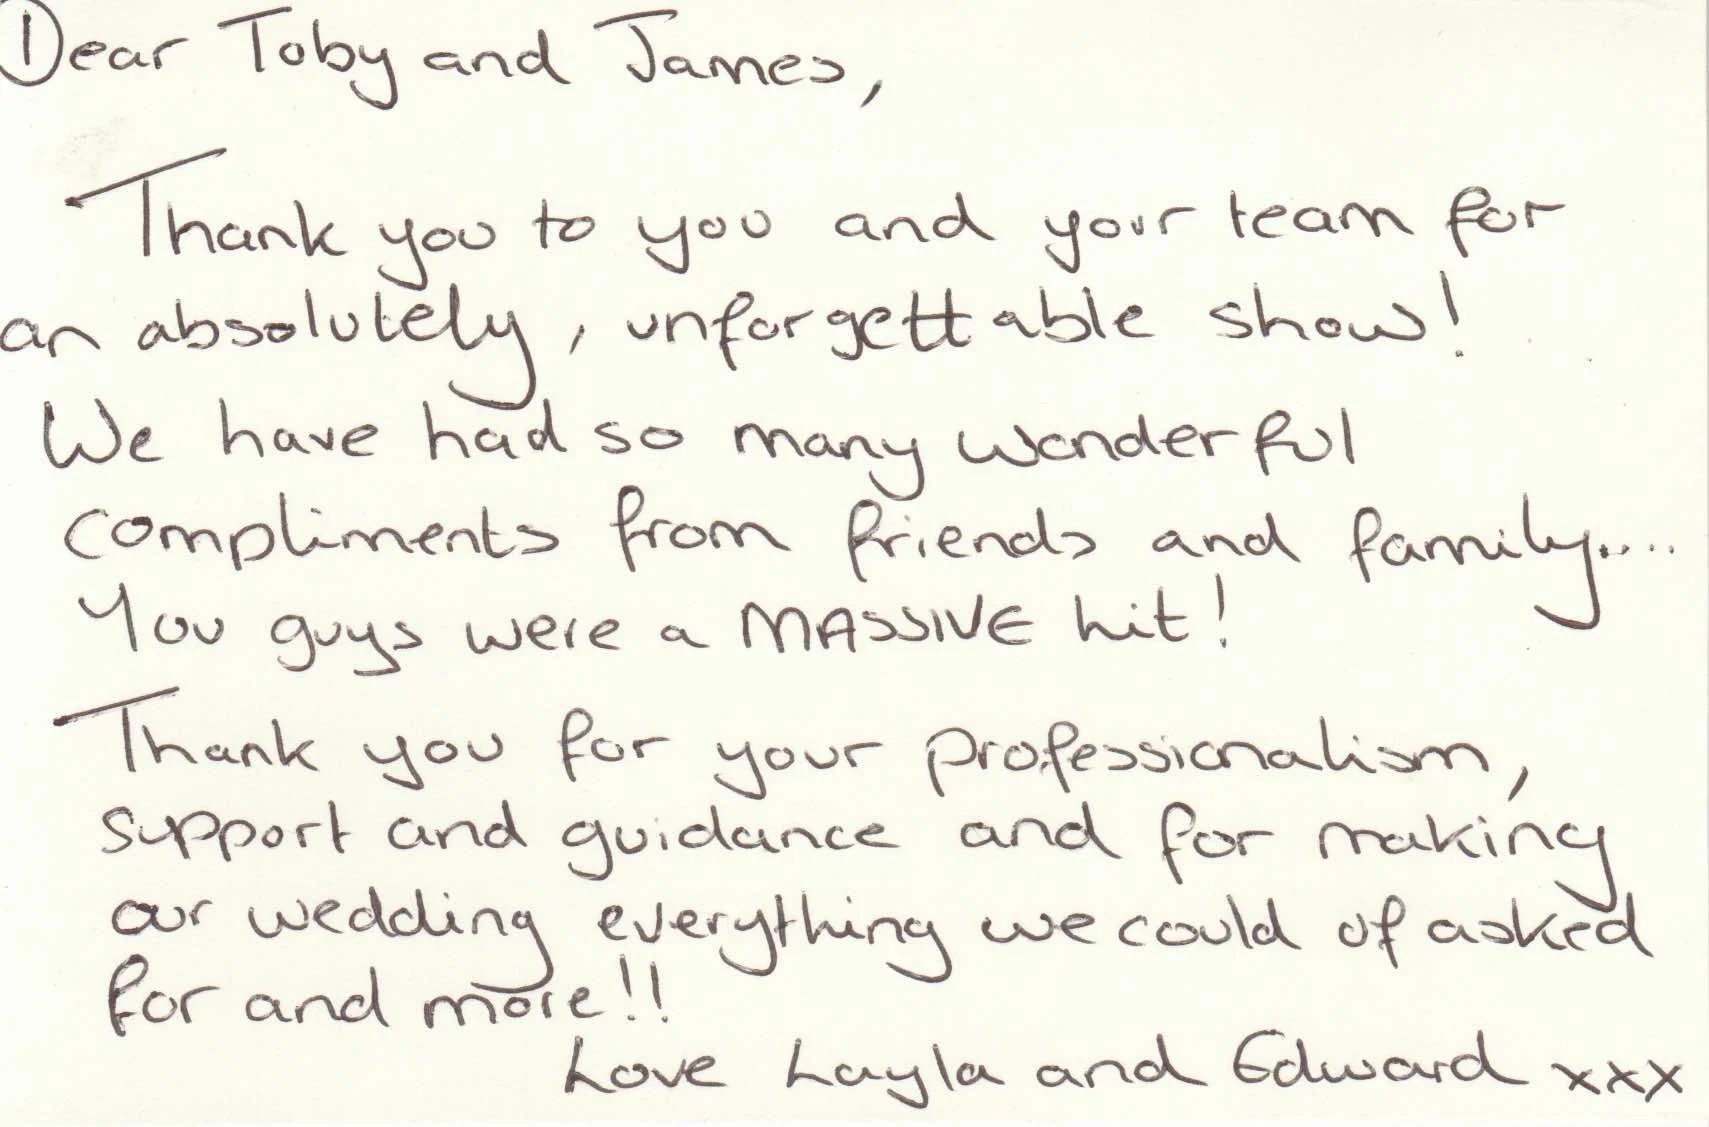 Dear Toby and James,
Thank you to you and your team for
an absolutely, unforgettable show!
We have had so many wonderful
compliments from friends and family....
You guys were a MASSIVE hit!
Thank you for your professionalism,
support and guidance and for making
our wedding everything we could of asked
for and more!!
Love Layla and Edward xxx